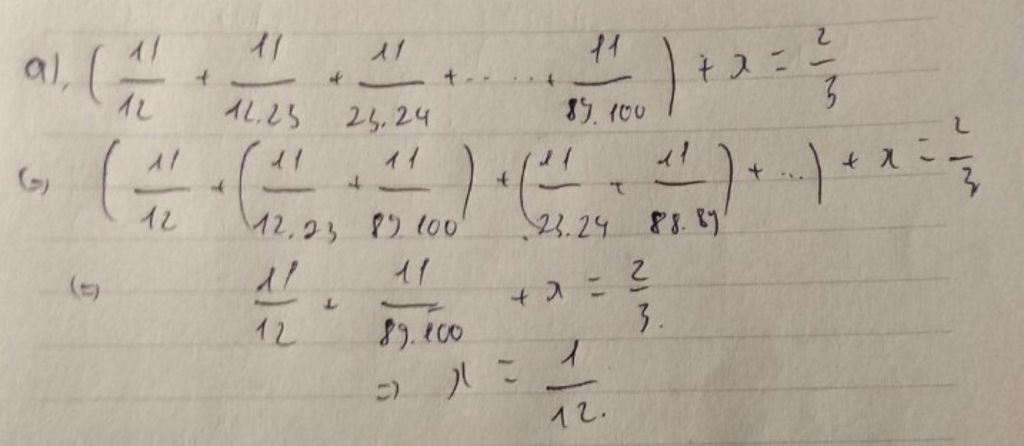 a), ( 11/12 + 11/12.23 + 11/23.24 + ..... + 11/89.100 ) + x = 2/3
(=) ( 11/12 + ( 11/12.23 + 11/89.100 ) + ( 11/23.24 + 11/88.89 ) + ... ) + x = 2/3
(=) 11/12 + 11/89.100 + x = 2/3.
=> x = 1/12.